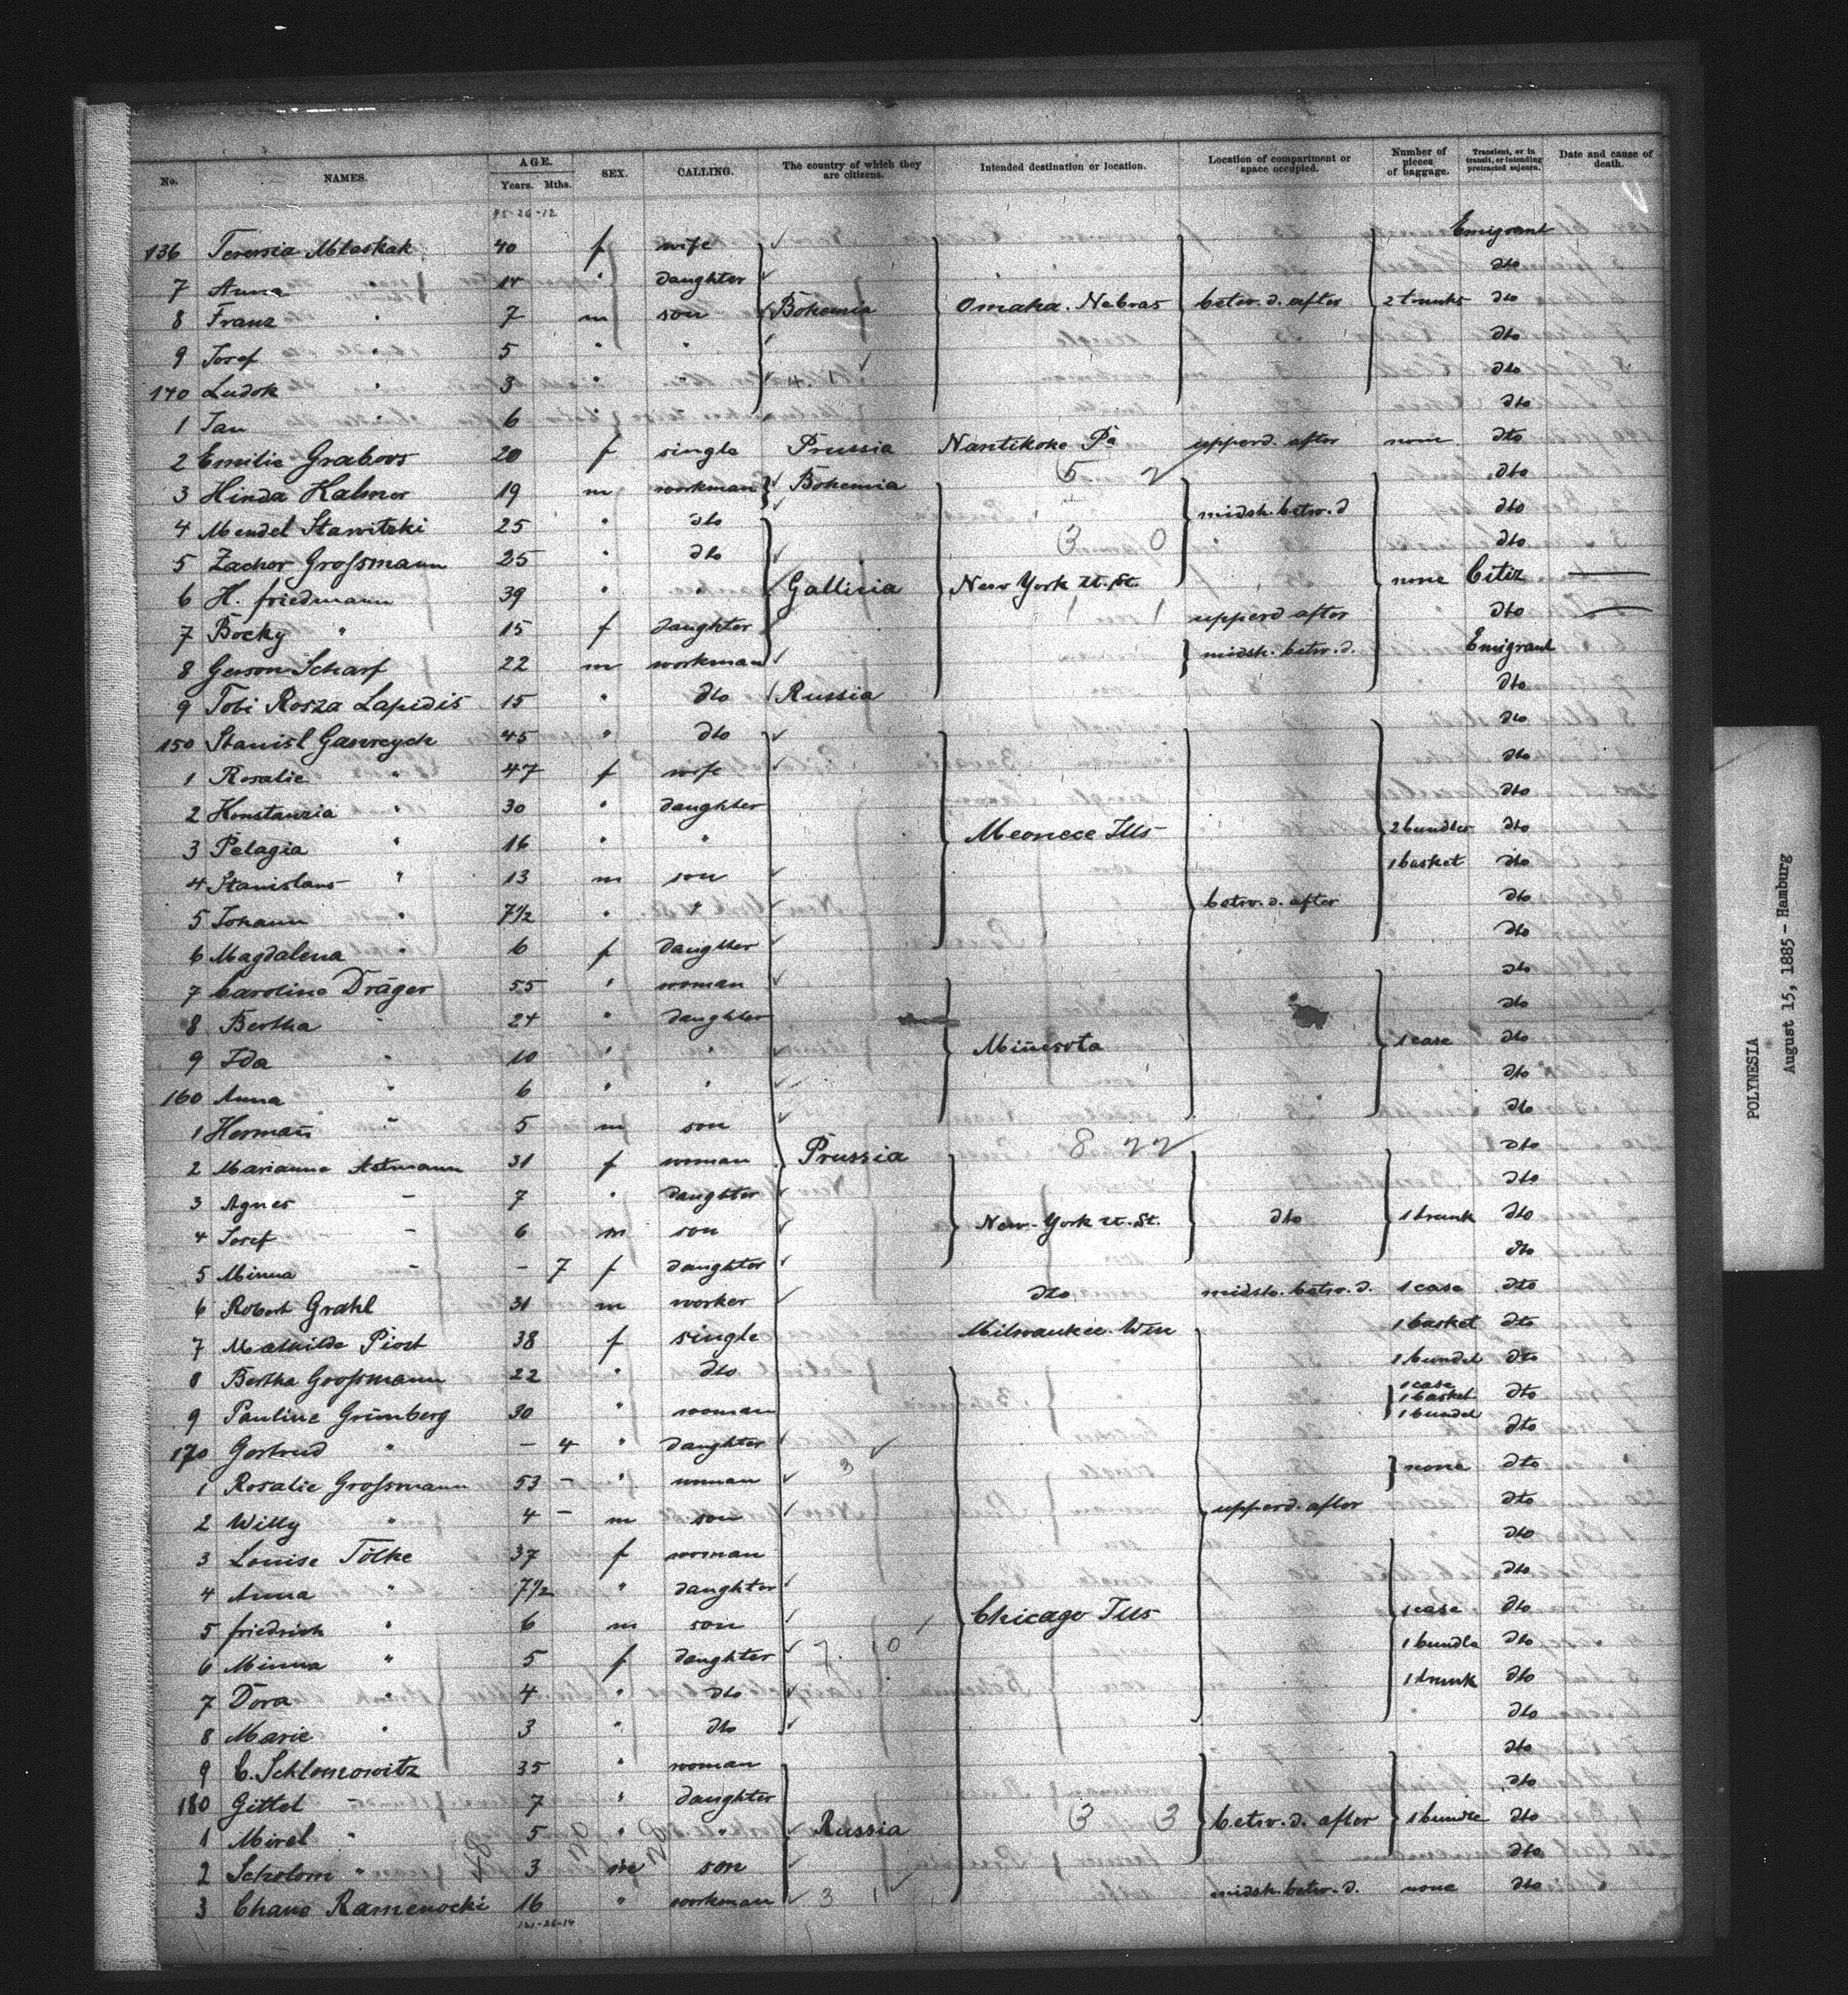 No. NAMES. AGE. Years. Mths. SEX. CALLING. The country of which they are citizens. Intended destination or location. Location of compartment or space occupied. Number of pieces of baggage. Transient, or in transit, or intending protracted sojourn. Date and cause of death.
95-26-12
136 Teressia Mlaskak 40 f wife Emigrant
7 Anna " 14 " daughter dto
8 Franz " 7 m son Bohemia Omaha. Nebras betw. d. after 2 trunks dto
9 Josef " 5 " " dto
140 Ludok " 3 " " dto
1 Jan 6 " dto
2 Emilie Graboos 20 f single Prussia Nantikoke Pa upperd. after none dto
3 Hinda Kalmor 19 m workman Bohemia dto
4 Mendel Stawitzki 25 " dto midsh. betw. d dto
5 Zachor Groſsmann 25 " dto dto
6 H. friedmann 39 " " Gallicia New York U. St. none Citiz —
7 Bocky " 15 f daughter upperd after dto —
8 Gerson Scharf 22 m workman midsh. betw. d. Emigrant
9 Tobi Rosza Lapidis 15 " dto Russia dto
150 Stanisl Gawreych 45 " dto dto
1 Rosalie " 47 f wife dto
2 Konstanzia " 30 " daughter dto
3 Pelagia " 16 " " Meonece Ills 2 bundles dto
4 Stanislaus " 13 m son 1 basket dto
5 Johann " 7½ " " betw. d. after dto
6 Magdalena " 6 f daugther dto
7 Caroline Dräger 55 " woman dto
8 Bertha " 24 " daughter dto
9 Ida " 10 " " Miñesota 1 case dto
160 Anna " 6 " " dto
1 Hermañ " 5 m son dto
2 Marianne Astmann 31 f woman Prussia 8 22 dto
3 Agnes – 7 " daughter dto
4 Josef – 6 m son New-York U. St. dto 1 trunk dto
5 Minna – – 7 f daughter dto
6 Robert Grahl 31 m worker dto midsh. betw. d. 1 case dto
7 Mathilde Piost 38 f single Milwaukee Win 1 basket dto
8 Bertha Gooſsmann 22 " dto 1 bundel dto
9 Pauline Grünberg 30 " woman 1 case 1 basket 1 bundel dto
170 Gertrud " – 4 " daughter dto
1 Rosalie Groſsmann 53 – " woman none dto
2 Willy " 4 – m son upperd. after dto
3 Louise Tölke 37 f woman dto
4 Anna " 7½ " daughter dto
5 friedrich " 6 m son Chicago Ills 1 case dto
6 Minna " 5 f daughter 1 bundle dto
7 Dora " 4 " dto 1 trunk dto
8 Marie " 3 " dto dto
9 C. Schlomowitz 35 " woman dto
180 Gittel – 7 " daughter dto
1 Mirel " 5 " " Russia 3 3 betw. d. after 1 bundle dto
2 Scholom " 3 m son dto
3 Chane Ramenocki 16 " workman midsh. betw. d. none dto
121-26-14
POLYNESIA
August 15, 1885 - Hamburg